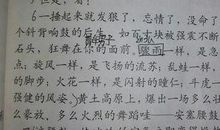 6一捶起来就发狠了，忘情了，没命了
个斜背响鼓的后生，如百十块被强震不断
石头，狂舞在你的面前。骤雨一样，是急
点；旋风一样，是飞扬的流苏；乱蛙一样，
的脚步；火花一样，是闪射的瞳仁；斗虎一
强健的风姿。黄土高原上，爆出一场多么
豪放、多么火烈的舞蹈哇——安塞腰鼓